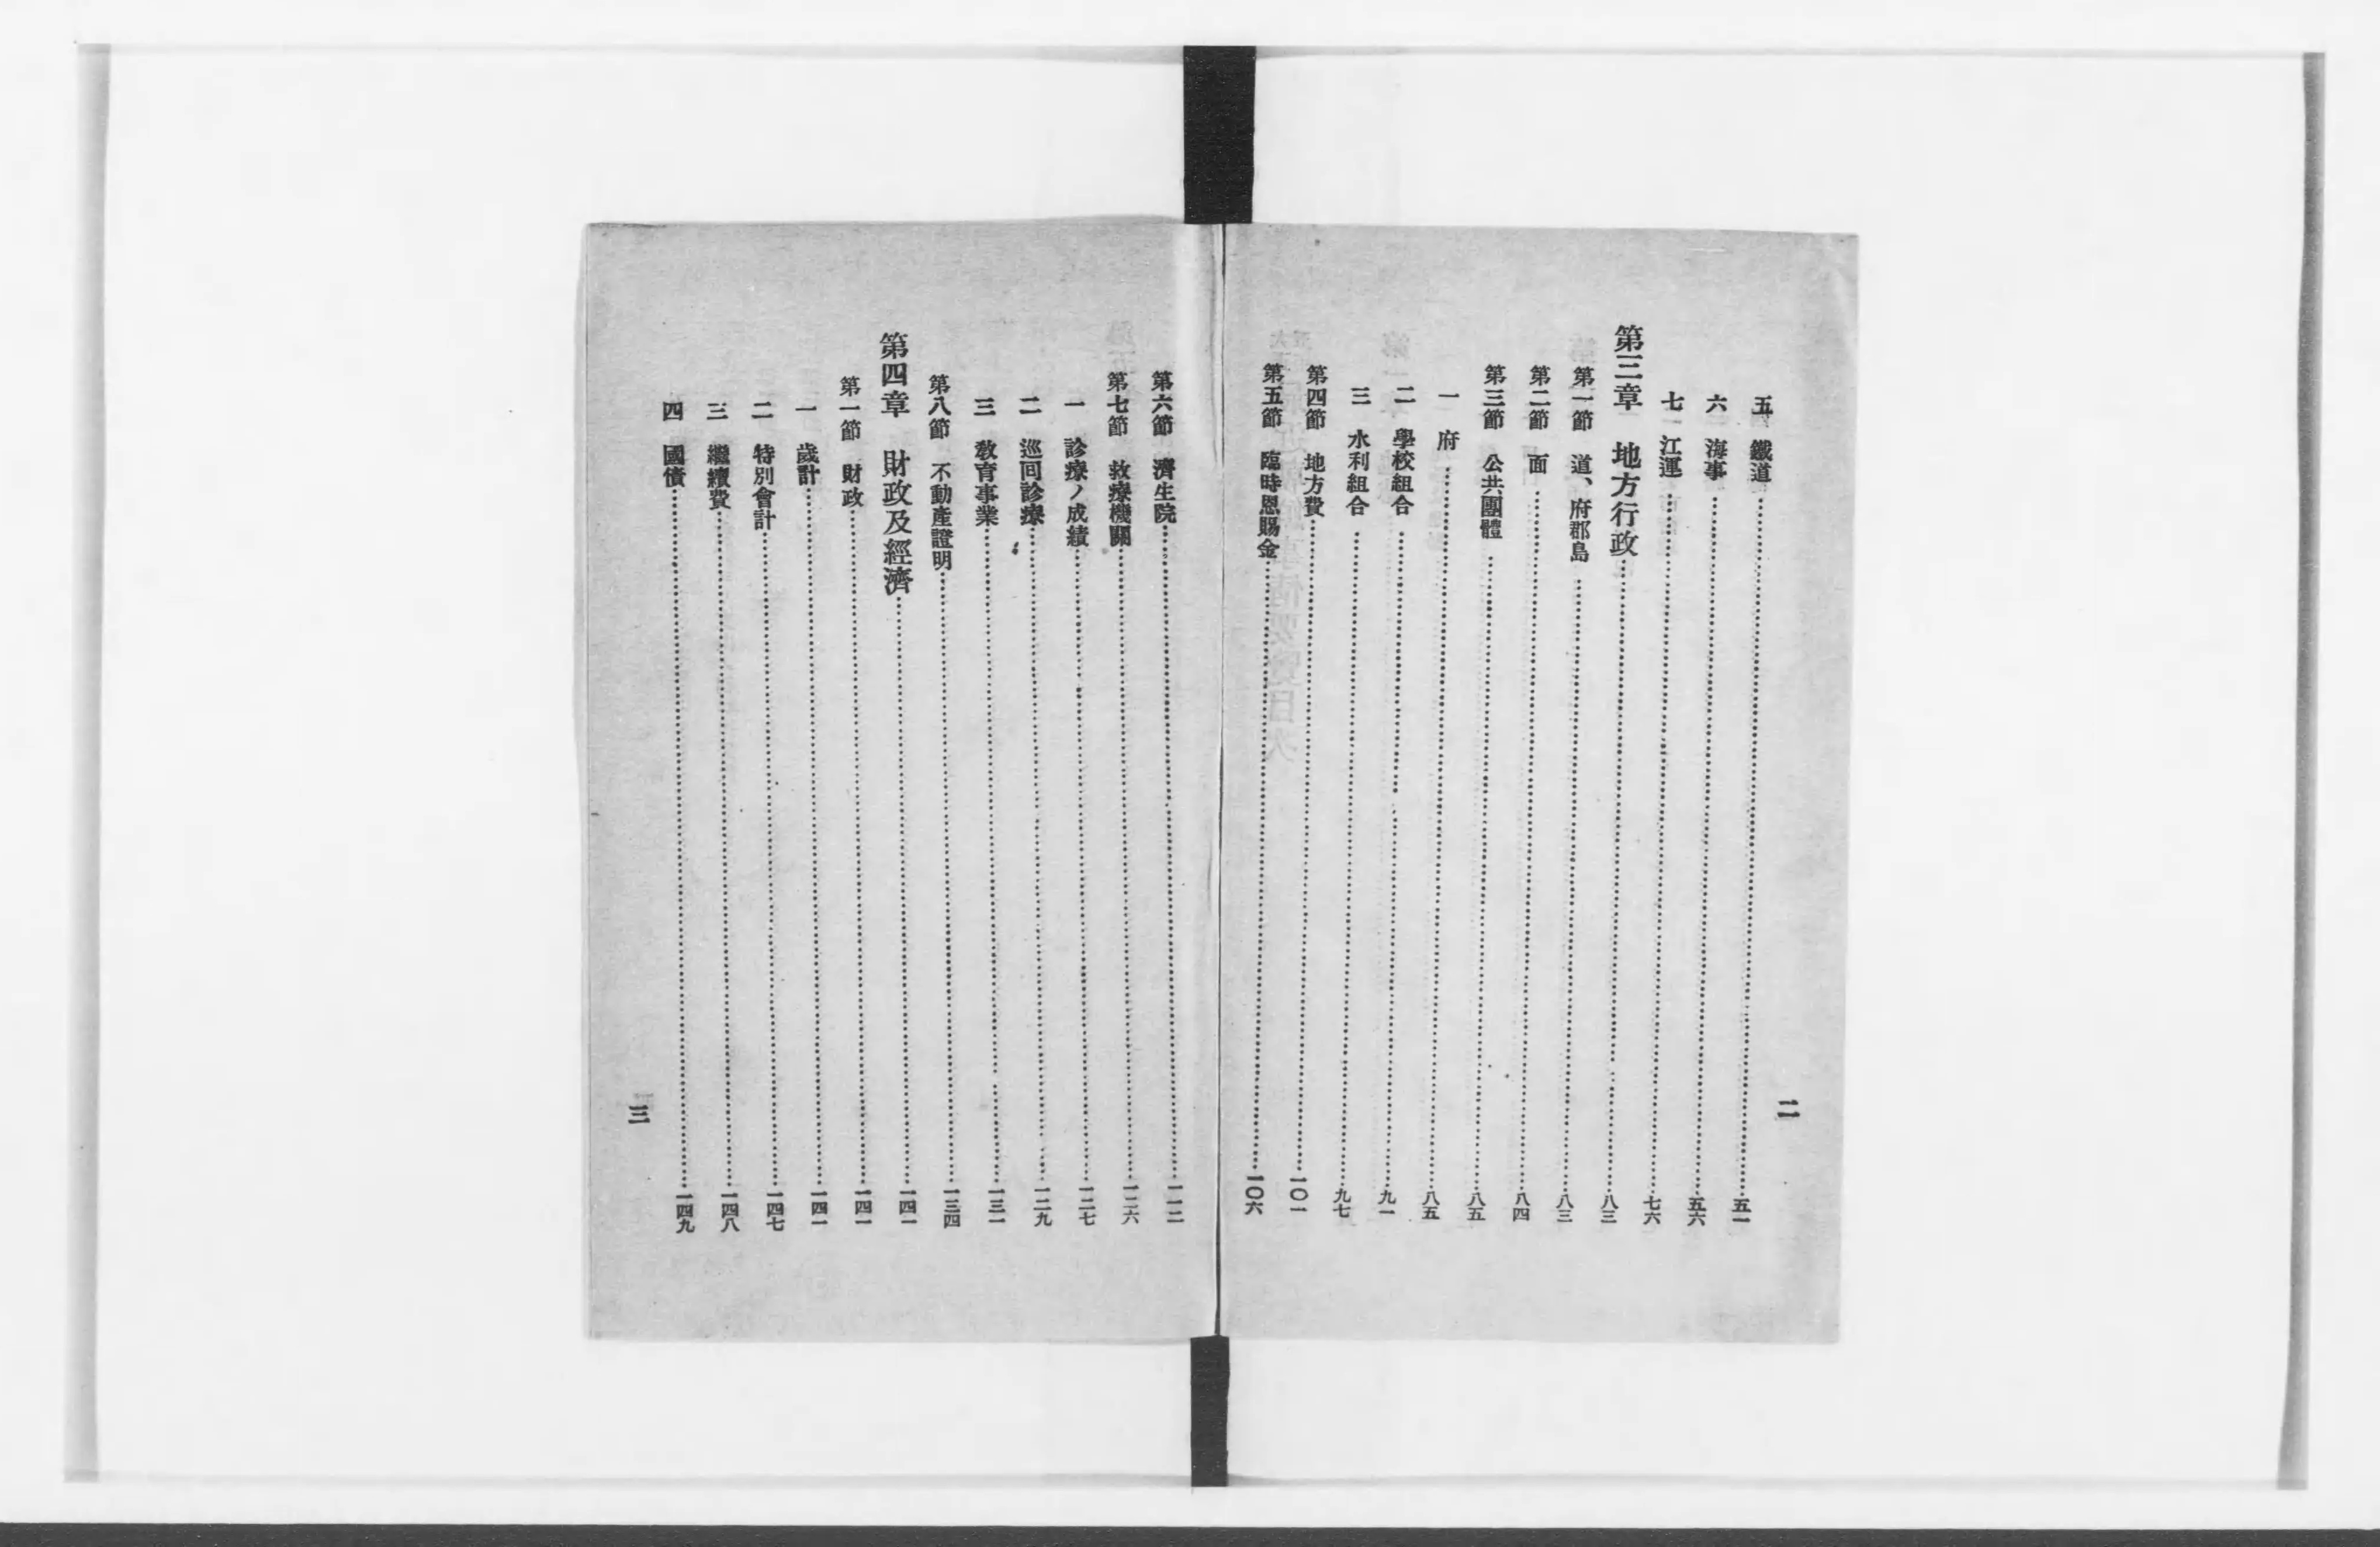 二
五 鐵道……五一
六 海事……五六
七 江運……七六
第三章 地方行政……八三
第一節 道、府郡島……八三
第二節 面……八四
第三節 公共團體……八五
一 府……八五
二 學校組合……九一
三 水利組合……九七
第四節 地方費……一〇一
第五節 臨時恩賜金……一〇六
第六節 濟生院……一一二
第七節 救療機關……一二六
一 診療ノ成績……一二七
二 巡回診療……一二九
三 敎育事業……一三一
第八節 不動產證明……一三四
第四章 財政及經濟……一四一
第一節 財政……一四一
一 歲計……一四一
二 特別會計……一四七
三 繼續費……一四八
四 國債……一四九
三